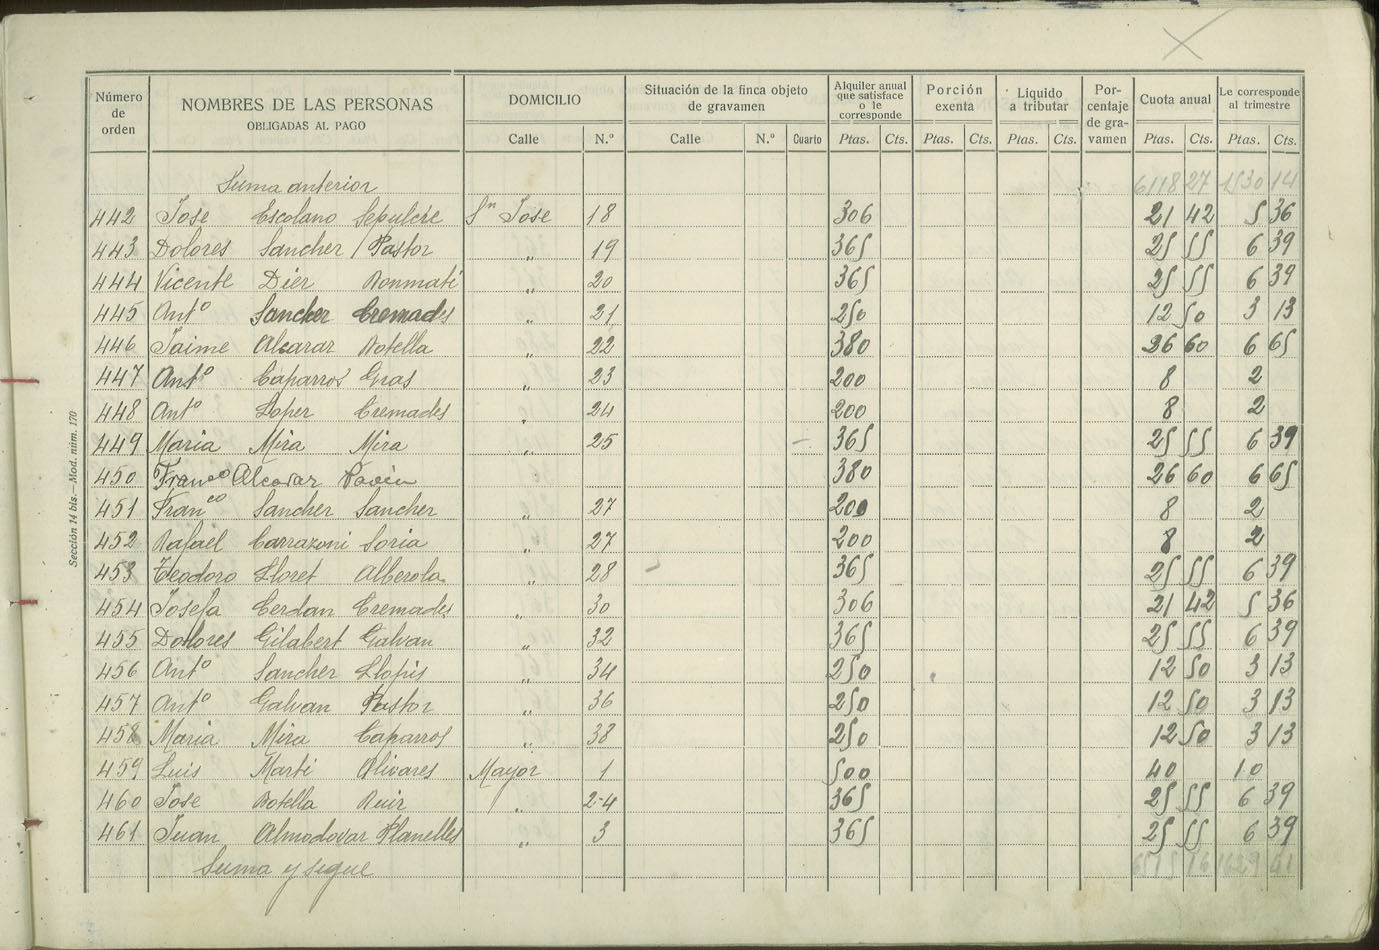 Número de orden NOMBRES DE LAS PERSONAS OBLIGADAS AL PAGO DOMICILIO Situación de la finca objeto de gravamen Alquiler anual que satisface o le corresponde Porción exenta Líquido a tributar Por-centaje de gra-vamen Cuota anual Le corresponde al trimestre
Calle N.º Calle N.º Cuarto Ptas. Cts. Ptas. Cts. Ptas. Cts. Ptas. Cts. Ptas. Cts.
Suma anterior 6118 27 1530 14
442 Jose Escolano Sepulcre Sn Jose 18 306 21 42 5 36
443 Dolores Sancher Pastor " 19 365 25 55 6 39
444 Vicente Dier Bonmati " 20 365 25 55 6 39
445 Antº Sancher Cremades " 21 250 12 50 3 13
446 Jaime Alcarar Botella " 22 380 26 60 6 65
447 Antº Caparros Gras " 23 200 8 2
448 Antº Loper Cremades " 24 200 8 2
449 Maria Mira Mira " 25 365 25 55 6 39
450 Franco Alcarar 380 26 60 6 65
451 Franco Sancher Sancher " 27 200 8 2
452 Rafael Carrazoni Soria " 27 200 8 2
453 Teodoro Lloret Alberola " 28 365 25 55 6 39
454 Josefa Cerdan Cremades " 30 306 21 42 5 36
455 Dolores Gilabert Galvan " 32 365 25 55 6 39
456 Antº Sancher Llopis " 34 250 12 50 3 13
457 Antº Galvan Pastor " 36 250 12 50 3 13
458 Maria Mira Caparros " 38 250 12 50 3 13
459 Luis Marti Olivares Mayor 1 500 40 10
460 Jose Botella Ruir " 2-4 365 25 55 6 39
461 Juan Almodovar Planelles " 3 365 25 55 6 39
Suma y sigue
Sección 14 bis.—Mod. núm. 170